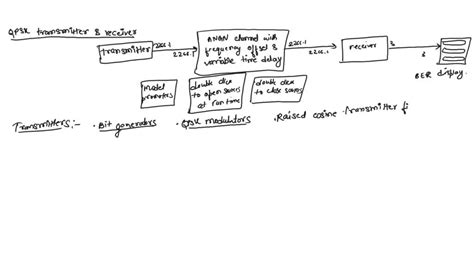 QPSK transmitter & receiver
transmitter
22cc.1
22cc.1
AWGN channel with
frequency offset &
variable time delay
22cc.1
22cc.1
receiver
3
3
BER display.
Model
parameters
double click
to open scopes
at run time
double click
to close scopes
Transmitters:- • Bit generators • QPSK modulators • Raised cosine transmitter fi